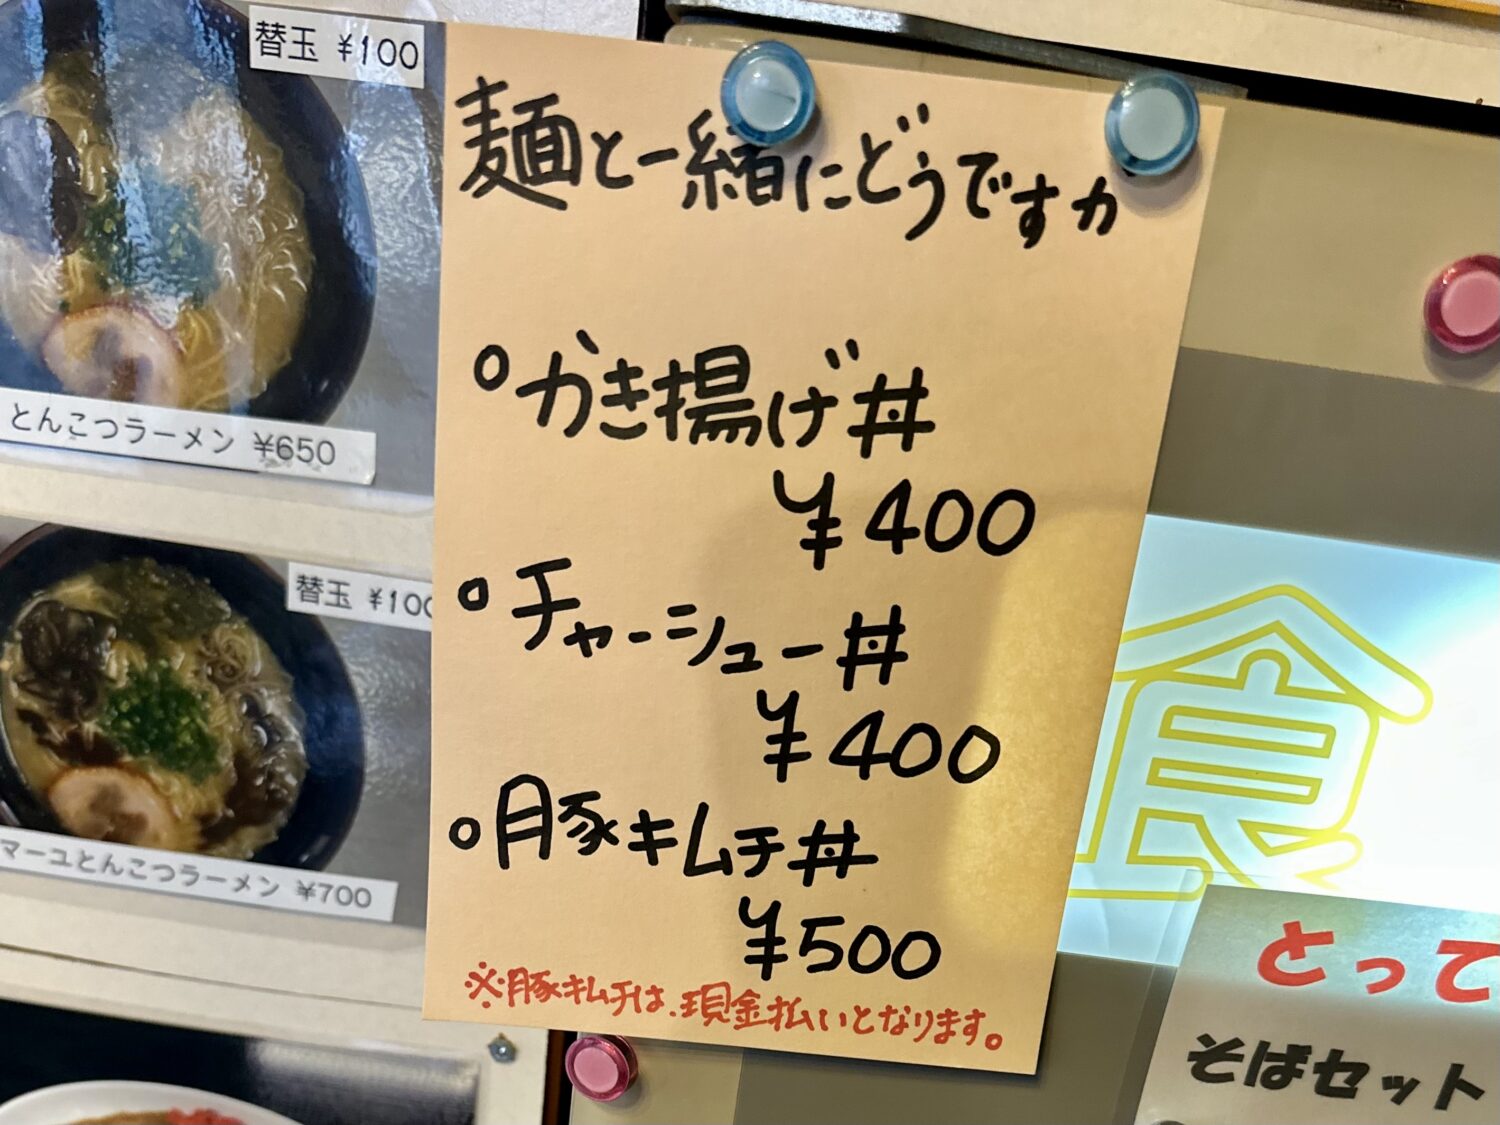 替玉 ¥100
とんこつラーメン ¥650
替玉 ¥100
マーユとんこつラーメン ¥700
麺と一緒にどうですか
○かき揚げ丼
¥400
○チャーシュー丼
¥400
○豚キムチ丼
¥500
※豚キムチは、現金払いとなります。
食
とって
そばセット